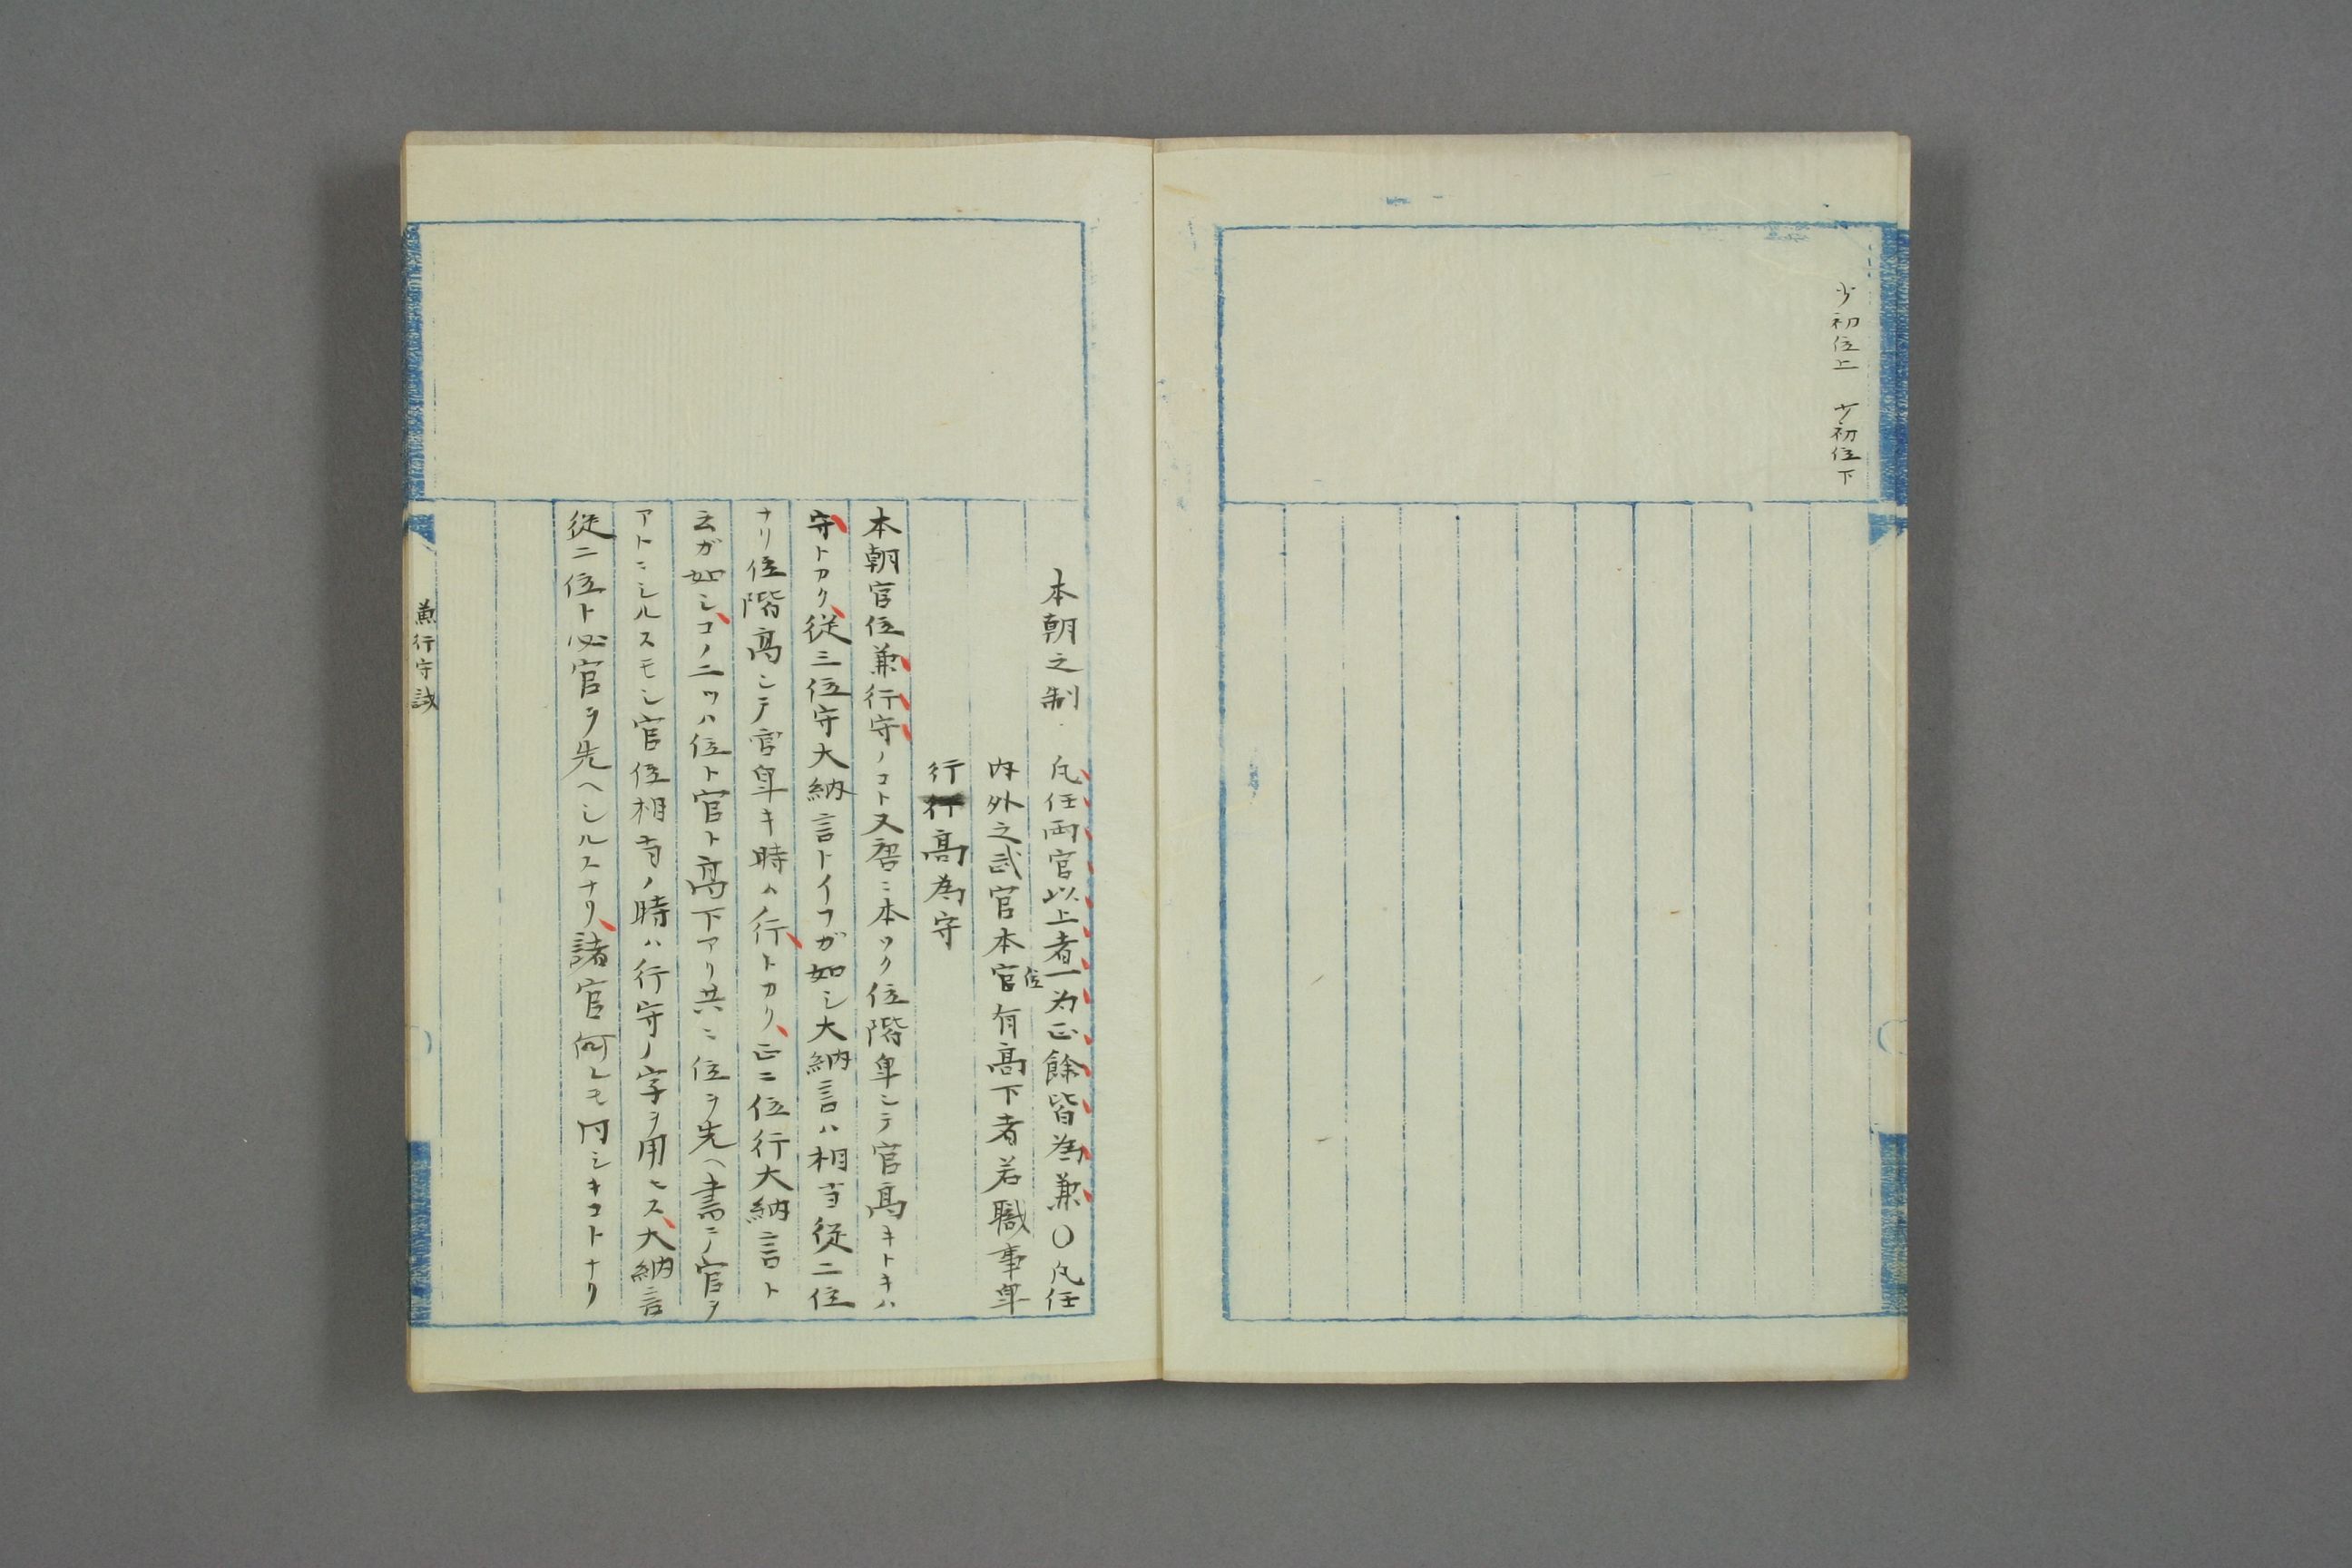 少初位上　少初位下
本朝之制　凡任両官以上者一为正餘皆為兼〇凡任
内外之武官本官位有高下者若職事卑
行行高為守
本朝官位兼行守ノコト又唐ニ本ツク位階卑シテ官高キトキハ
守トカク従三位守大納言トイフガ如シ大納言ハ相当従二位
ナリ位階高シテ官卑キ時ハ行トカク正二位行大納言ト
云ガ如シコノ二ツハ位ト官ト高下アリ共ニ位ヲ先ヘ書テ官ヲ
アトニシルスモシ官位相当ノ時ハ行守ノ字ヲ用ヒス大納言
従二位ト必官ヲ先ヘシルスナリ諸官何レモ同シキコトナリ
兼行守試